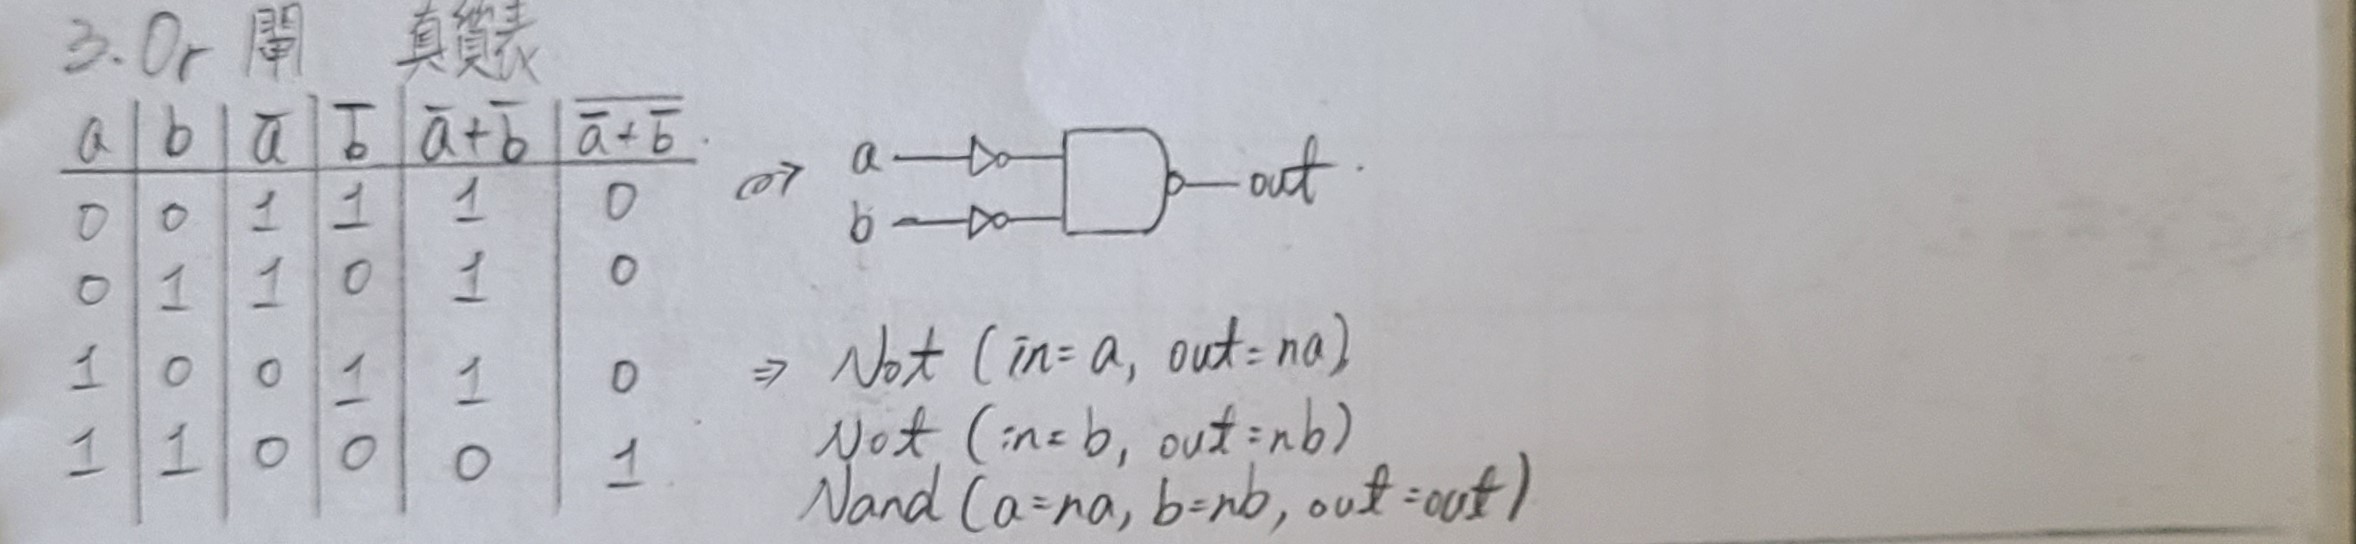 3. Or 閘 真值表
a b a̅ b̅ a̅+b̅ \overline{a̅+b̅}
0 0 1 1 1 0
0 1 1 0 1 0
1 0 0 1 1 0
1 1 0 0 0 1
⇒ a b out
⇒ Not (in=a, out=na)
Not (in=b, out=nb)
Nand (a=na, b=nb, out=out)